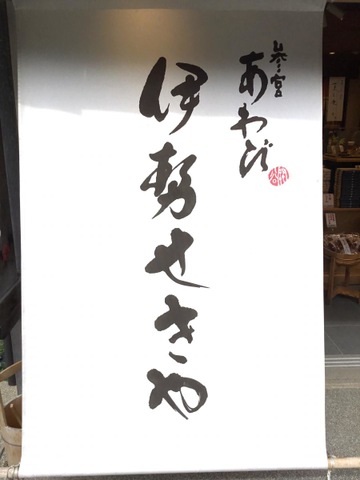 参宮
あわび
伊勢せきや